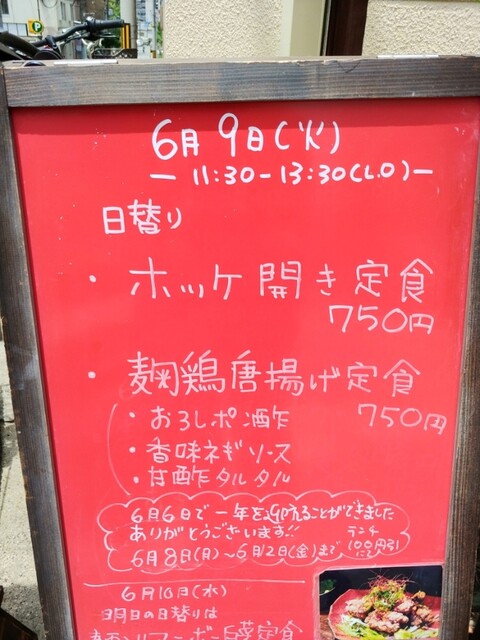 6月9日(火)
— 11:30-13:30(L.O)—
日替り
・ホッケ開き定食
750円
・麹鶏唐揚げ定食
750円
・おろしポン酢
・香味ネギソース
・甘酢タルタル
6月6日で一年を迎えることができました
ありがとうございます!! ランチ
6月8日(月)~6月12日(金)まで 100円引
にて
6月10日(水)
明日の日替りは
マーボー白菜定食